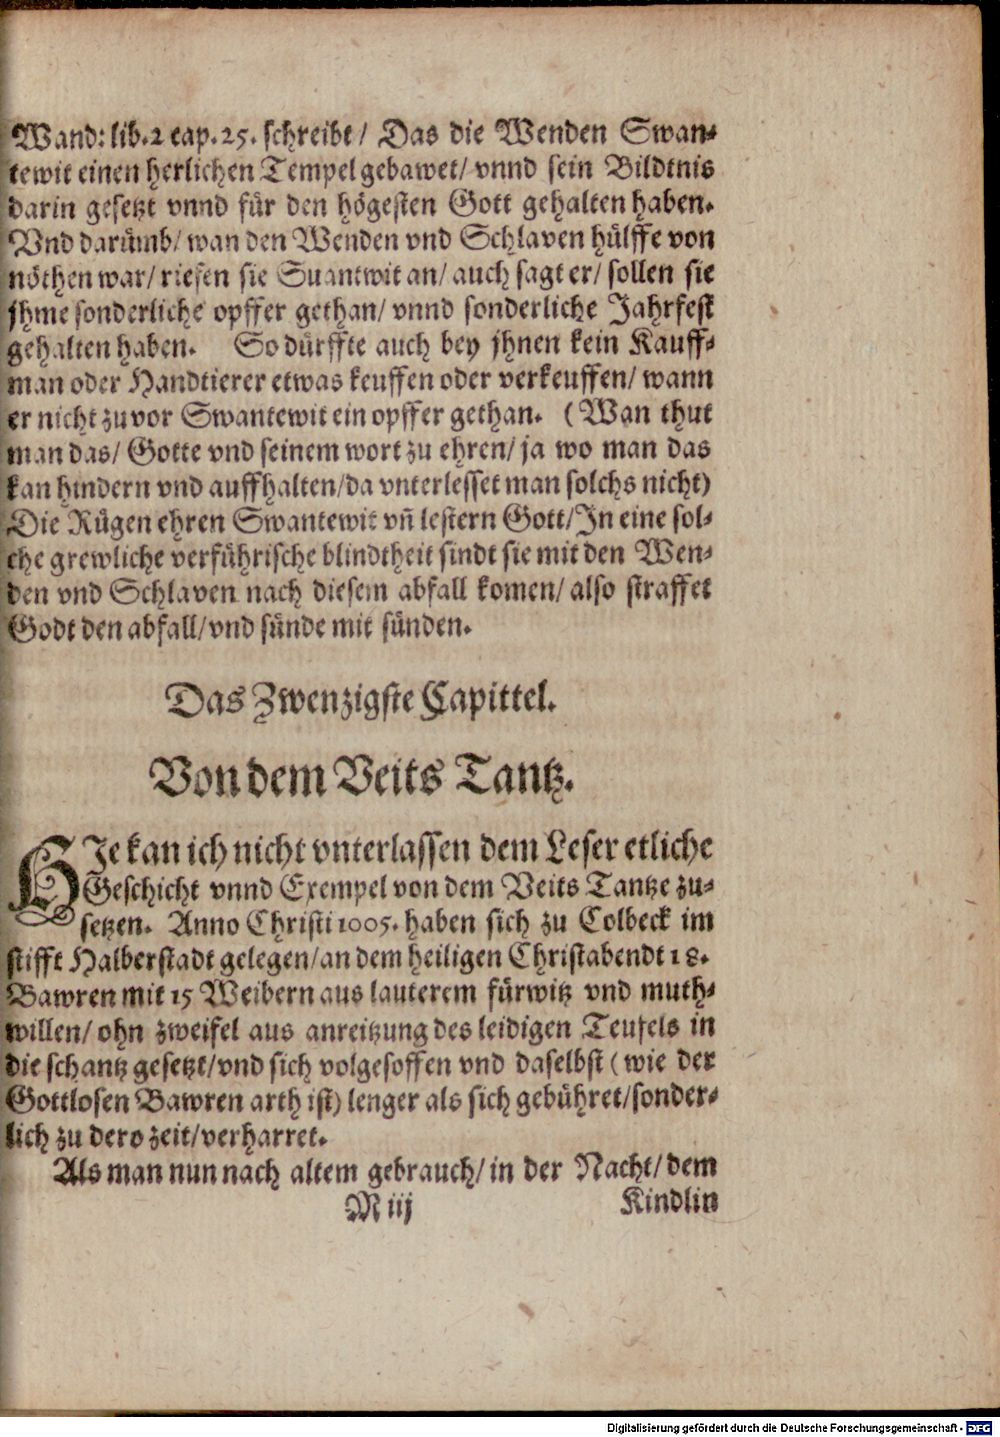 Wand: lib. 2 cap. 25. schreibt / Das die Wenden Swan-
tewit einen herlichen Tempel gebawet / vnnd sein Bildtnis
darin gesetzt vnnd für den högesten Gott gehalten haben.
Vnd darümb / wan den Wenden vnd Schlaven hülffe von
nöthen war / riefen sie Suantwit an / auch sagt er / sollen sie
jhme sonderliche opffer gethan / vnnd sonderliche Jahrfest
gehalten haben. So dürffte auch bey jhnen kein Kauff-
man oder Handtierer etwas keuffen oder verkeuffen / wann
er nicht zuvor Swantewit ein opffer gethan. (Wan thut
man das / Gotte vnd seinem wort zu ehren / ja wo man das
kan hindern vnd auffhalten / da vnterlesset man solchs nicht)
Die Rügen ehren Swantewit vn̄ lestern Gott / In eine sol-
che grewliche verführische blindtheit sindt sie mit den Wen-
den vnd Schlaven nach diesem abfall komen / also straffet
Godt den abfall / vnd sünde mit sünden.
Das Zwenzigste Capittel.
Von dem Veits Tantz.
HIe kan ich nicht vnterlassen dem Leser etliche
Geschicht vnnd Exempel von dem Veits Tantze zu-
setzen. Anno Christi 1005. haben sich zu Colbeck im
stifft Halberstadt gelegen / an dem heiligen Christabendt 18.
Bawren mit 15 Weibern aus lauterem fürwitz vnd muth-
willen / ohn zweifel aus anreitzung des leidigen Teufels in
die schantz gesetzt / vnd sich volgesoffen vnd daselbst (wie der
Gottlosen Bawren arth ist) lenger als sich gebühret / sonder-
lich zu dero zeit / verharret.
Als man nun nach altem gebrauch / in der Nacht / dem
M iij Kindlin
Digitalisierung gefördert durch die Deutsche Forschungsgemeinschaft - DFG